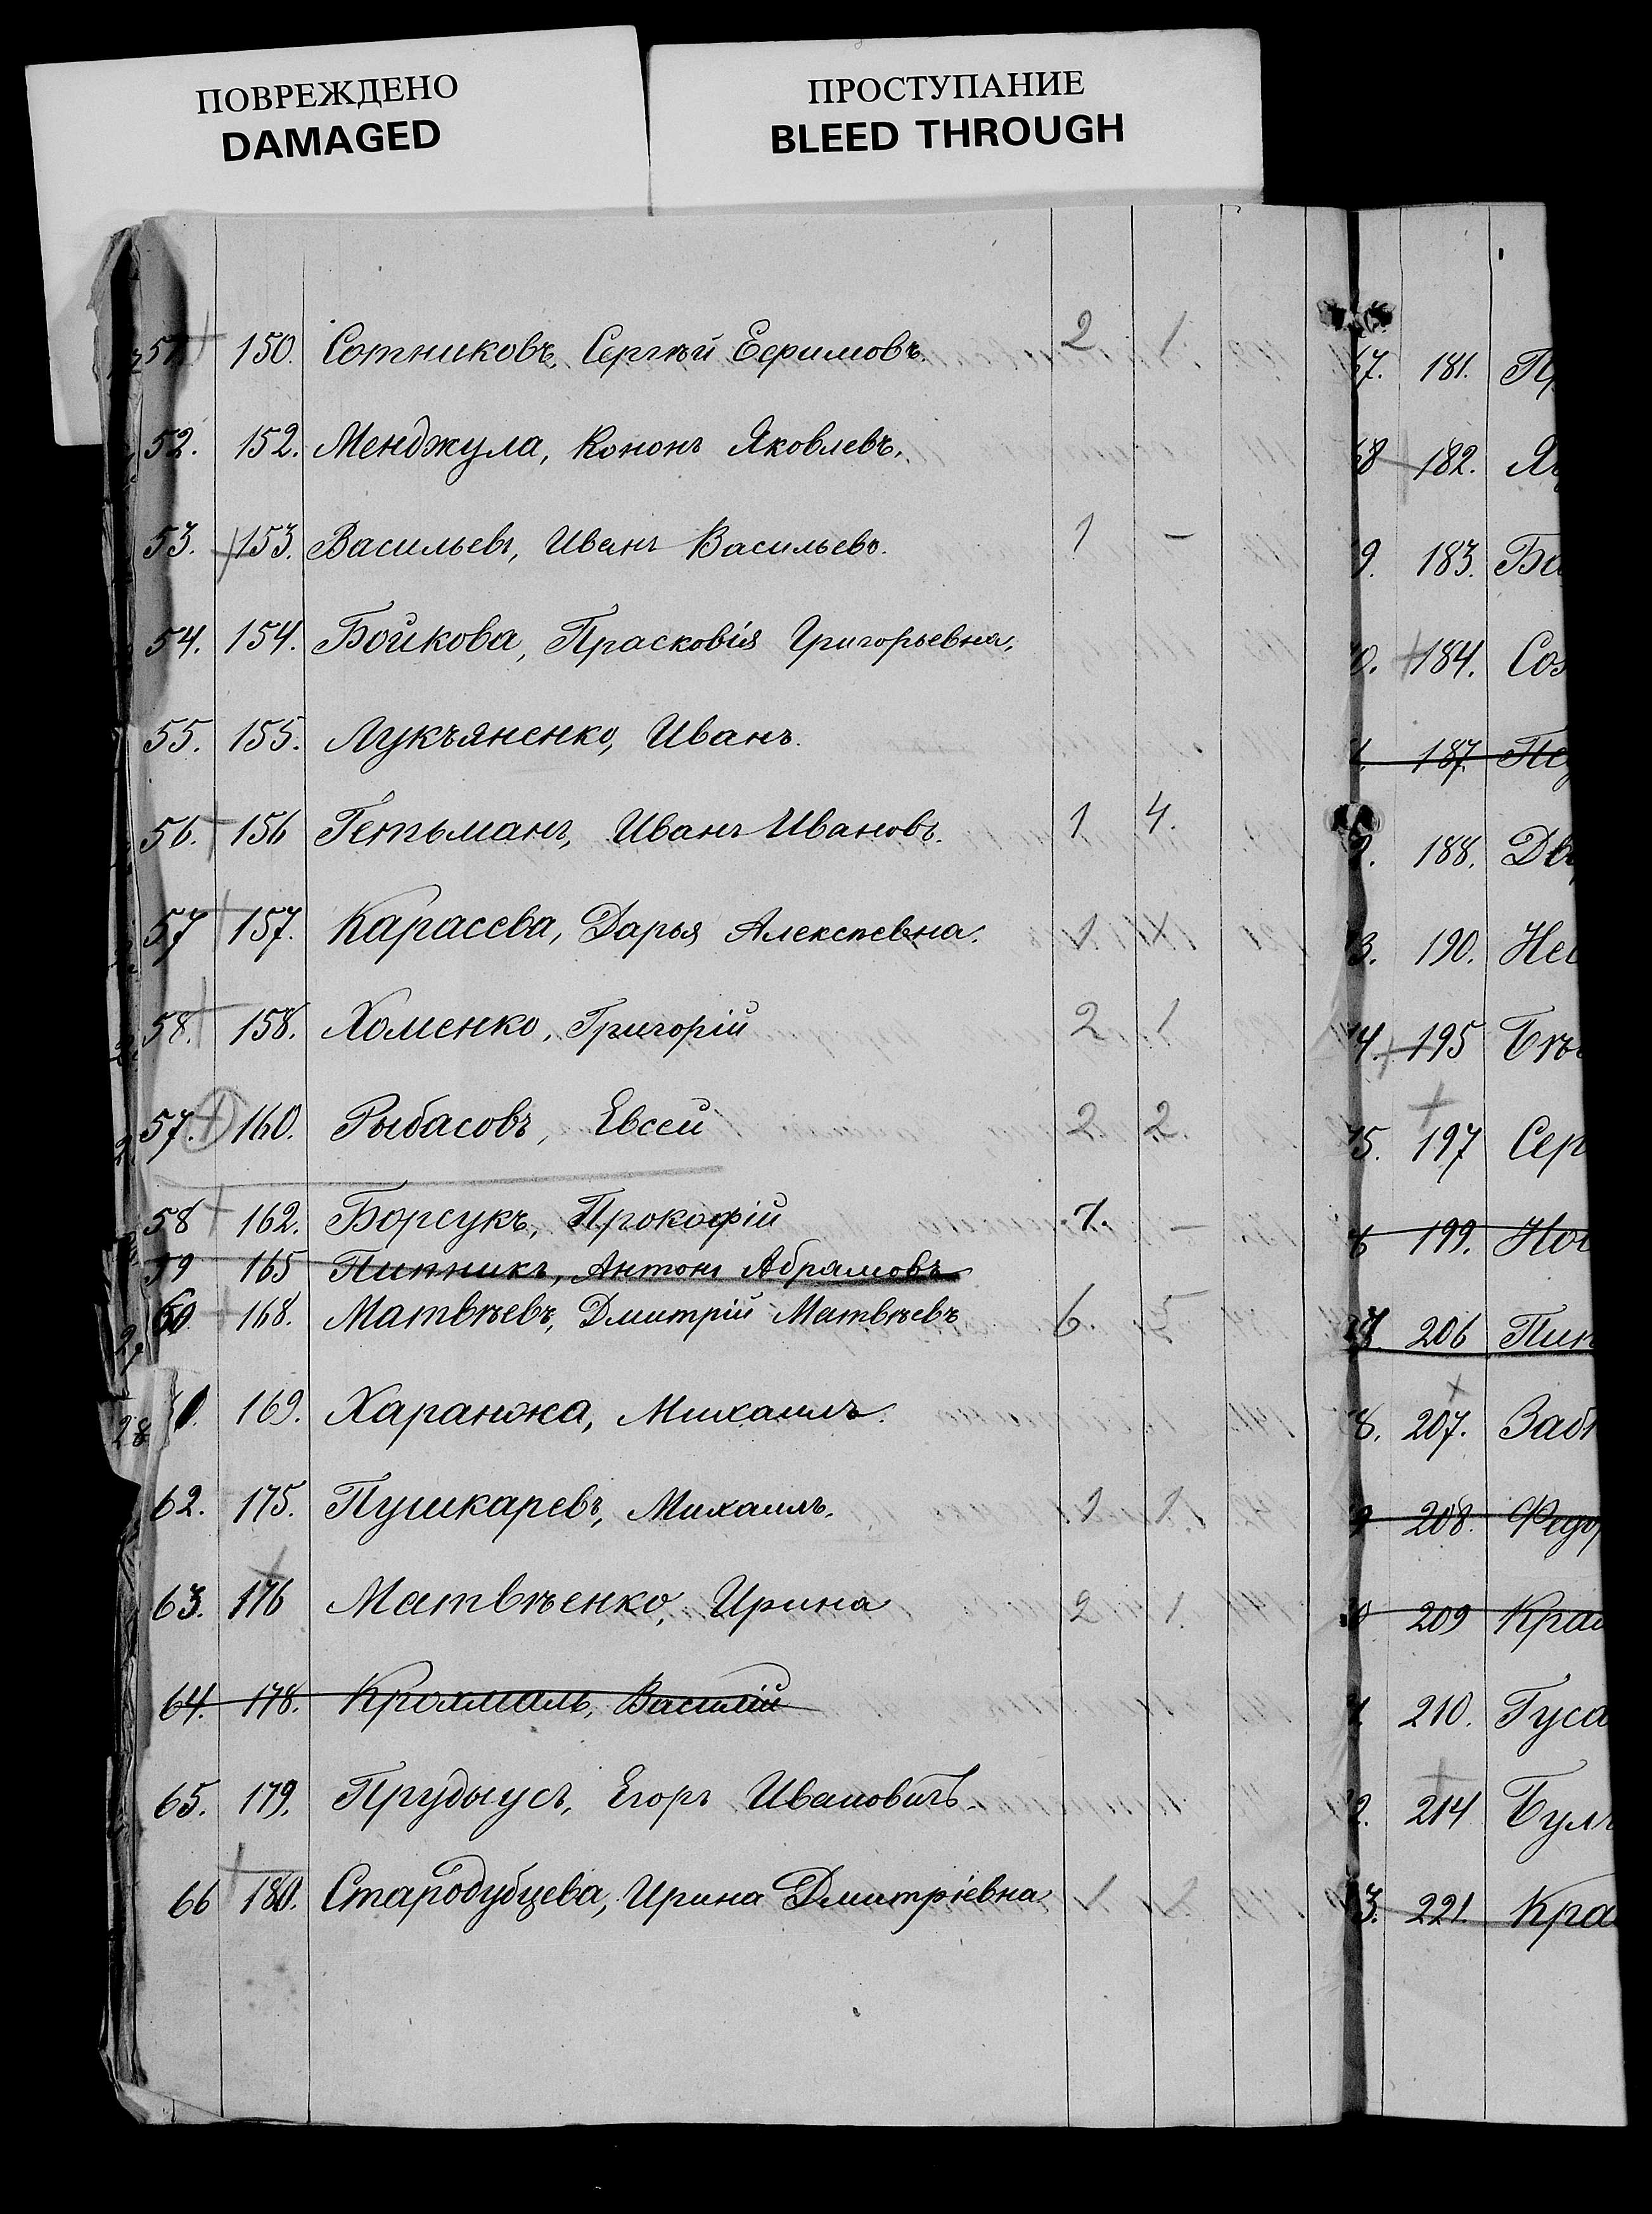 ПОВРЕЖДЕНО
DAMAGED
ПРОСТУПАНИЕ
BLEED THROUGH
51 150. Сотниковъ, Сергѣй Ефимовъ. 2 1
52. 152. Менджула, Кононъ Яковлевъ.
53. 153. Васильевъ, Иванъ Васильевъ. 1 -
54. 154. Бойкова, Прасковія Григорьевна.
55. 155. Лукъяненко, Иванъ.
56. 156 Гетьманъ, Иванъ Ивановъ. 1 4.
57 157. Карасева, Дарья Алексѣевна. 1
58. 158. Хоменко, Григорій 2 1
57. 160. Рыбасовъ, Евсей 2 2.
58 162. Борсукъ, Прокофій 7. -
59 165 Пипникъ, Антонъ Абрамовъ
60. 168. Матвѣевъ, Дмитрій Матвѣевъ 6. 5
169. Харанжа, Михаилъ.
62. 175. Пушкаревъ, Михаилъ. 1 1.
63. 176 Матвѣенко, Ирина 2 1.
64. 178. Крохмаль, Василій
65. 179. Прудыусъ, Егоръ Ивановичъ.
66 180. Стародубцева, Ирина Дмитріевна 1 2
67. 181. Пр
68 182. Я
9. 183. Ба
0. 184. Соз
187. Пе
188. Дв
3. 190. Не
4. 195 Бѣ
75. 197 Сер
199. Но
206 Пип
8. 207. Заб
9 208. Федо
209 Кра
210. Гуса
2. 214 Бул
3. 221. Кра